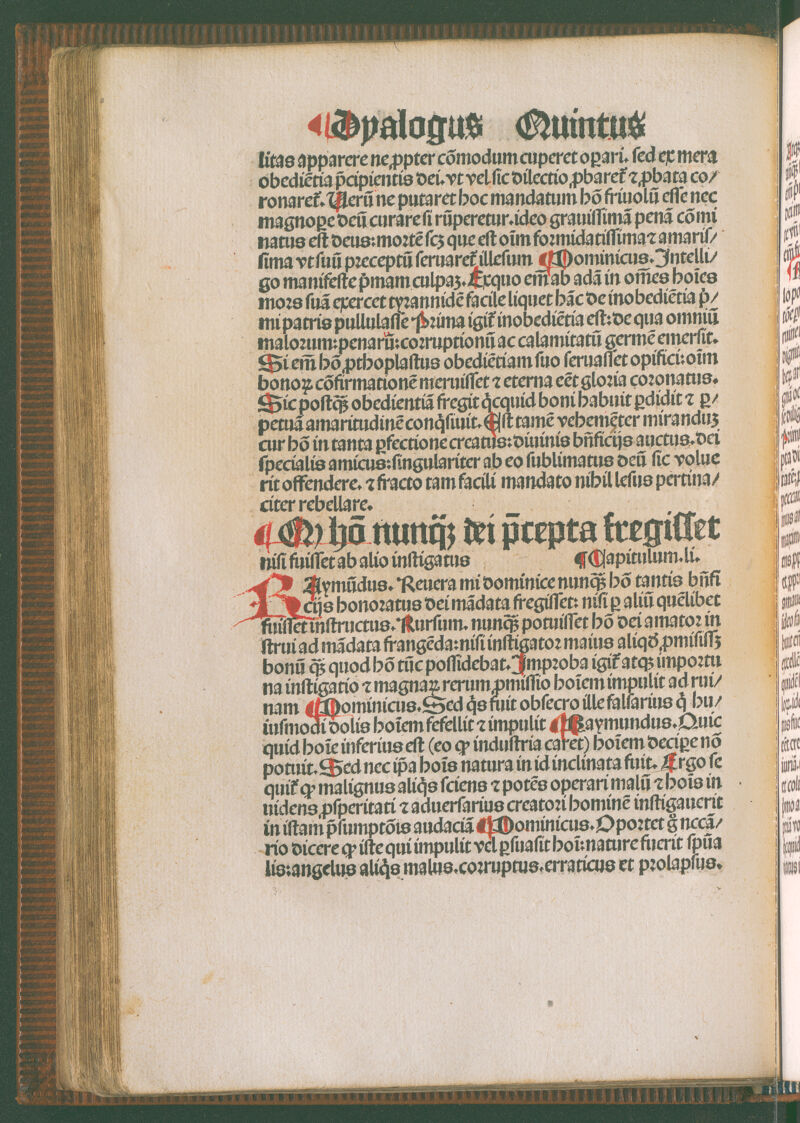 ¶ Dyalogus Quintus
litas apparere ne ꝓpter cōmodum cuperet oꝑari. ſed ex mera
obediētia p̄cipientis dei. vt vel ſic dilectio ꝓbaret᷑ ⁊ ꝓbata co⸗
ronaret᷑. Uerū ne putaret hoc mandatum hō friuolū eſſe nec
magnoꝑe deū curare ſi rūperetur. ideo grauiſſimā penā cōmi
natus eſt deus: mortē ſcꝫ que eſt oīm formidatiſſima ⁊ amariſ⸗
ſima vt ſuū preceptū ſeruaret᷑ illeſum ¶ Dominicus. Intelli⸗
go manifeſte p̄mam culpaꝫ. Ex quo em̄ ab adā in om̄es hoīes
mors ſuā exercet tyrannidē facile liquet hāc de inobediētia p̄⸗
mi patris pullulaſſe Prima igit᷑ inobediētia eſt: de qua omniū
malorum: penarū: corruptionū ac calamitatū germē emerſit.
Si em̄ hō ꝓthoplaſtus obediētiam ſuo ſeruaſſet opifici: oīm
bonoꝝ cōfirmationē meruiſſet ⁊ eterna eēt gloria coronatus.
Sic poſtqꝫ̄ obedientiā fregit q̇cquid boni habuit ꝑdidit ⁊ ꝑ⸗
petuā amaritudinē conq̇ſiuit. Eſt tamē vehemēter miranduꝫ
cur hō in tanta ꝑfectione creatus: diuinis bn̄ficijs auctus. dei
ſpecialis amicus: ſingulariter ab eo ſublimatus deū ſic volue
rit offendere. ⁊ fracto tam facili mandato nihil leſus pertina⸗
citer rebellare.
¶ Q hō nunqꝫ̄ dei p̄cepta fregiſſet
niſi fuiſſet ab alio inſtigatus ¶ Capitulum. li.
RAymūdus. Reuera mi dominice nunqꝫ̄ hō tantis bn̄fi
cijs honoratus dei mādata fregiſſet: niſi ꝑ aliū quēlibet
fuiſſet inſtructus. Rurſum. nunqꝫ̄ potuiſſet hō dei amator in
ſtrui ad mādata frangēda: niſi inſtigator maius aliqď ꝓmiſiſſꝫ
bonū qꝫ̄ quod hō tūc poſſidebat. Improba igit᷑ atqꝫ importu
na inſtigatio ⁊ magnaꝝ rerum ꝓmiſſio hoīem impulit ad rui⸗
nam ¶ Dominicus. Sed q̇s fuit obſecro ille falſarius q̇ hu⸗
iuſmodi dolis hoīem fefellit ⁊ impulit ¶ Raymundus. Quic
quid hoīe inferius eſt (eo ꝙ induſtria caret) hoīem deciꝑe nō
potuit. Sed nec ip̄a hoīs natura in id inclinata fuit. Ergo ſe
quit᷑ ꝙ malignus aliq̇s ſciens ⁊ potēs operari malū ⁊ hoīs in
uidens ꝓſperitati ⁊ aduerſarius creatori hominē inſtigauerit
in iſtam p̄ſumptōis audaciā ¶ Dominicus. Oportet g̊ nccā⸗
rio dicere ꝙ iſte qui impulit vel ꝑſuaſit hoī: nature fuerit ſpūa
lis: angelus aliq̇s malus. corruptus. erraticus et prolapſus.